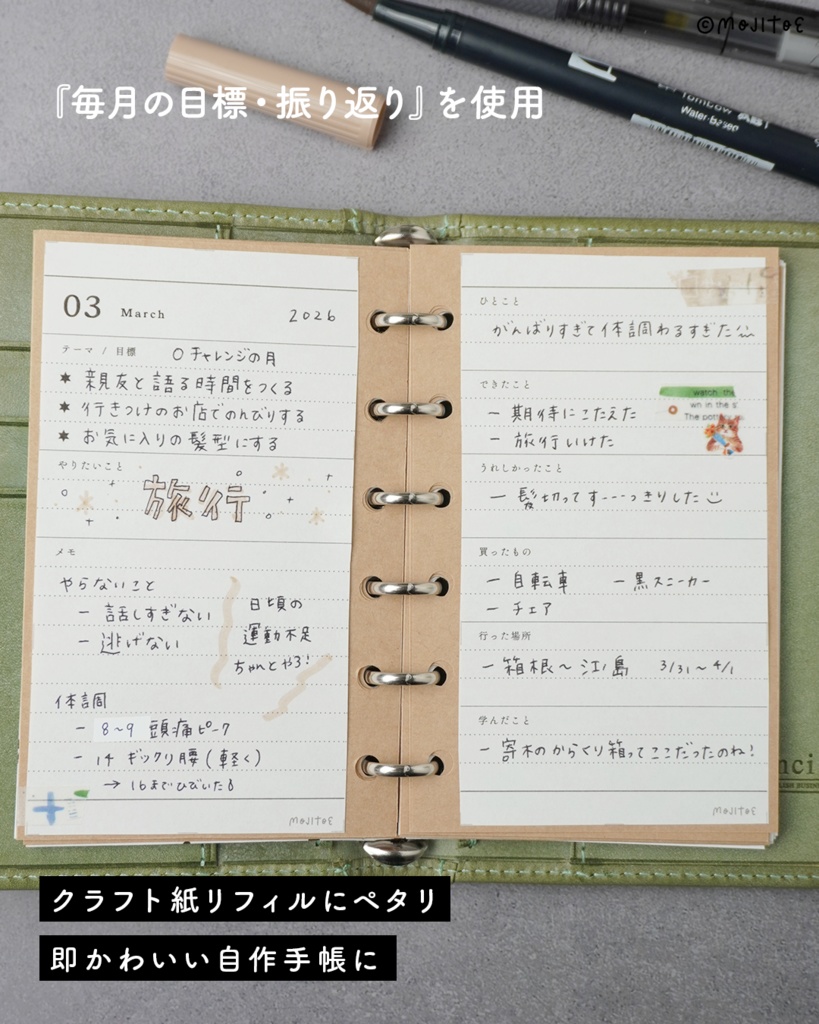 ©mojitoε
『毎月の目標・振り返り』を使用
Tombow ABT
Water-based
03 March 2026
テーマ / 目標 ○チャレンジの月
★ 親友と語る時間をつくる
★ 行きつけのお店でのんびりする
★ お気に入りの髪型にする
やりたいこと
旅行
メモ
やらないこと
- 話しすぎない
- 逃げない
日頃の
運動不足
ちゃんとやろ!
体調
- 8~9 頭痛ピーク
- 14 ギックリ腰(軽く)
→ 16までひびいた
mojitoε
ひとこと
がんばりすぎて体調わるすぎた
できたこと
- 期待にこたえた
- 旅行いけた
watch the
wn in the s
The pottery
うれしかったこと
- 髪切ってすーーーっきりした
買ったもの
- 自転車 - 黒スニーカー
- チェア
行った場所
- 箱根~江ノ島 3/31~4/1
学んだこと
- 寄木のからくり箱ってここだったのね!
mojitoε
nci
クラフト紙リフィルにペタリ
即かわいい自作手帳に